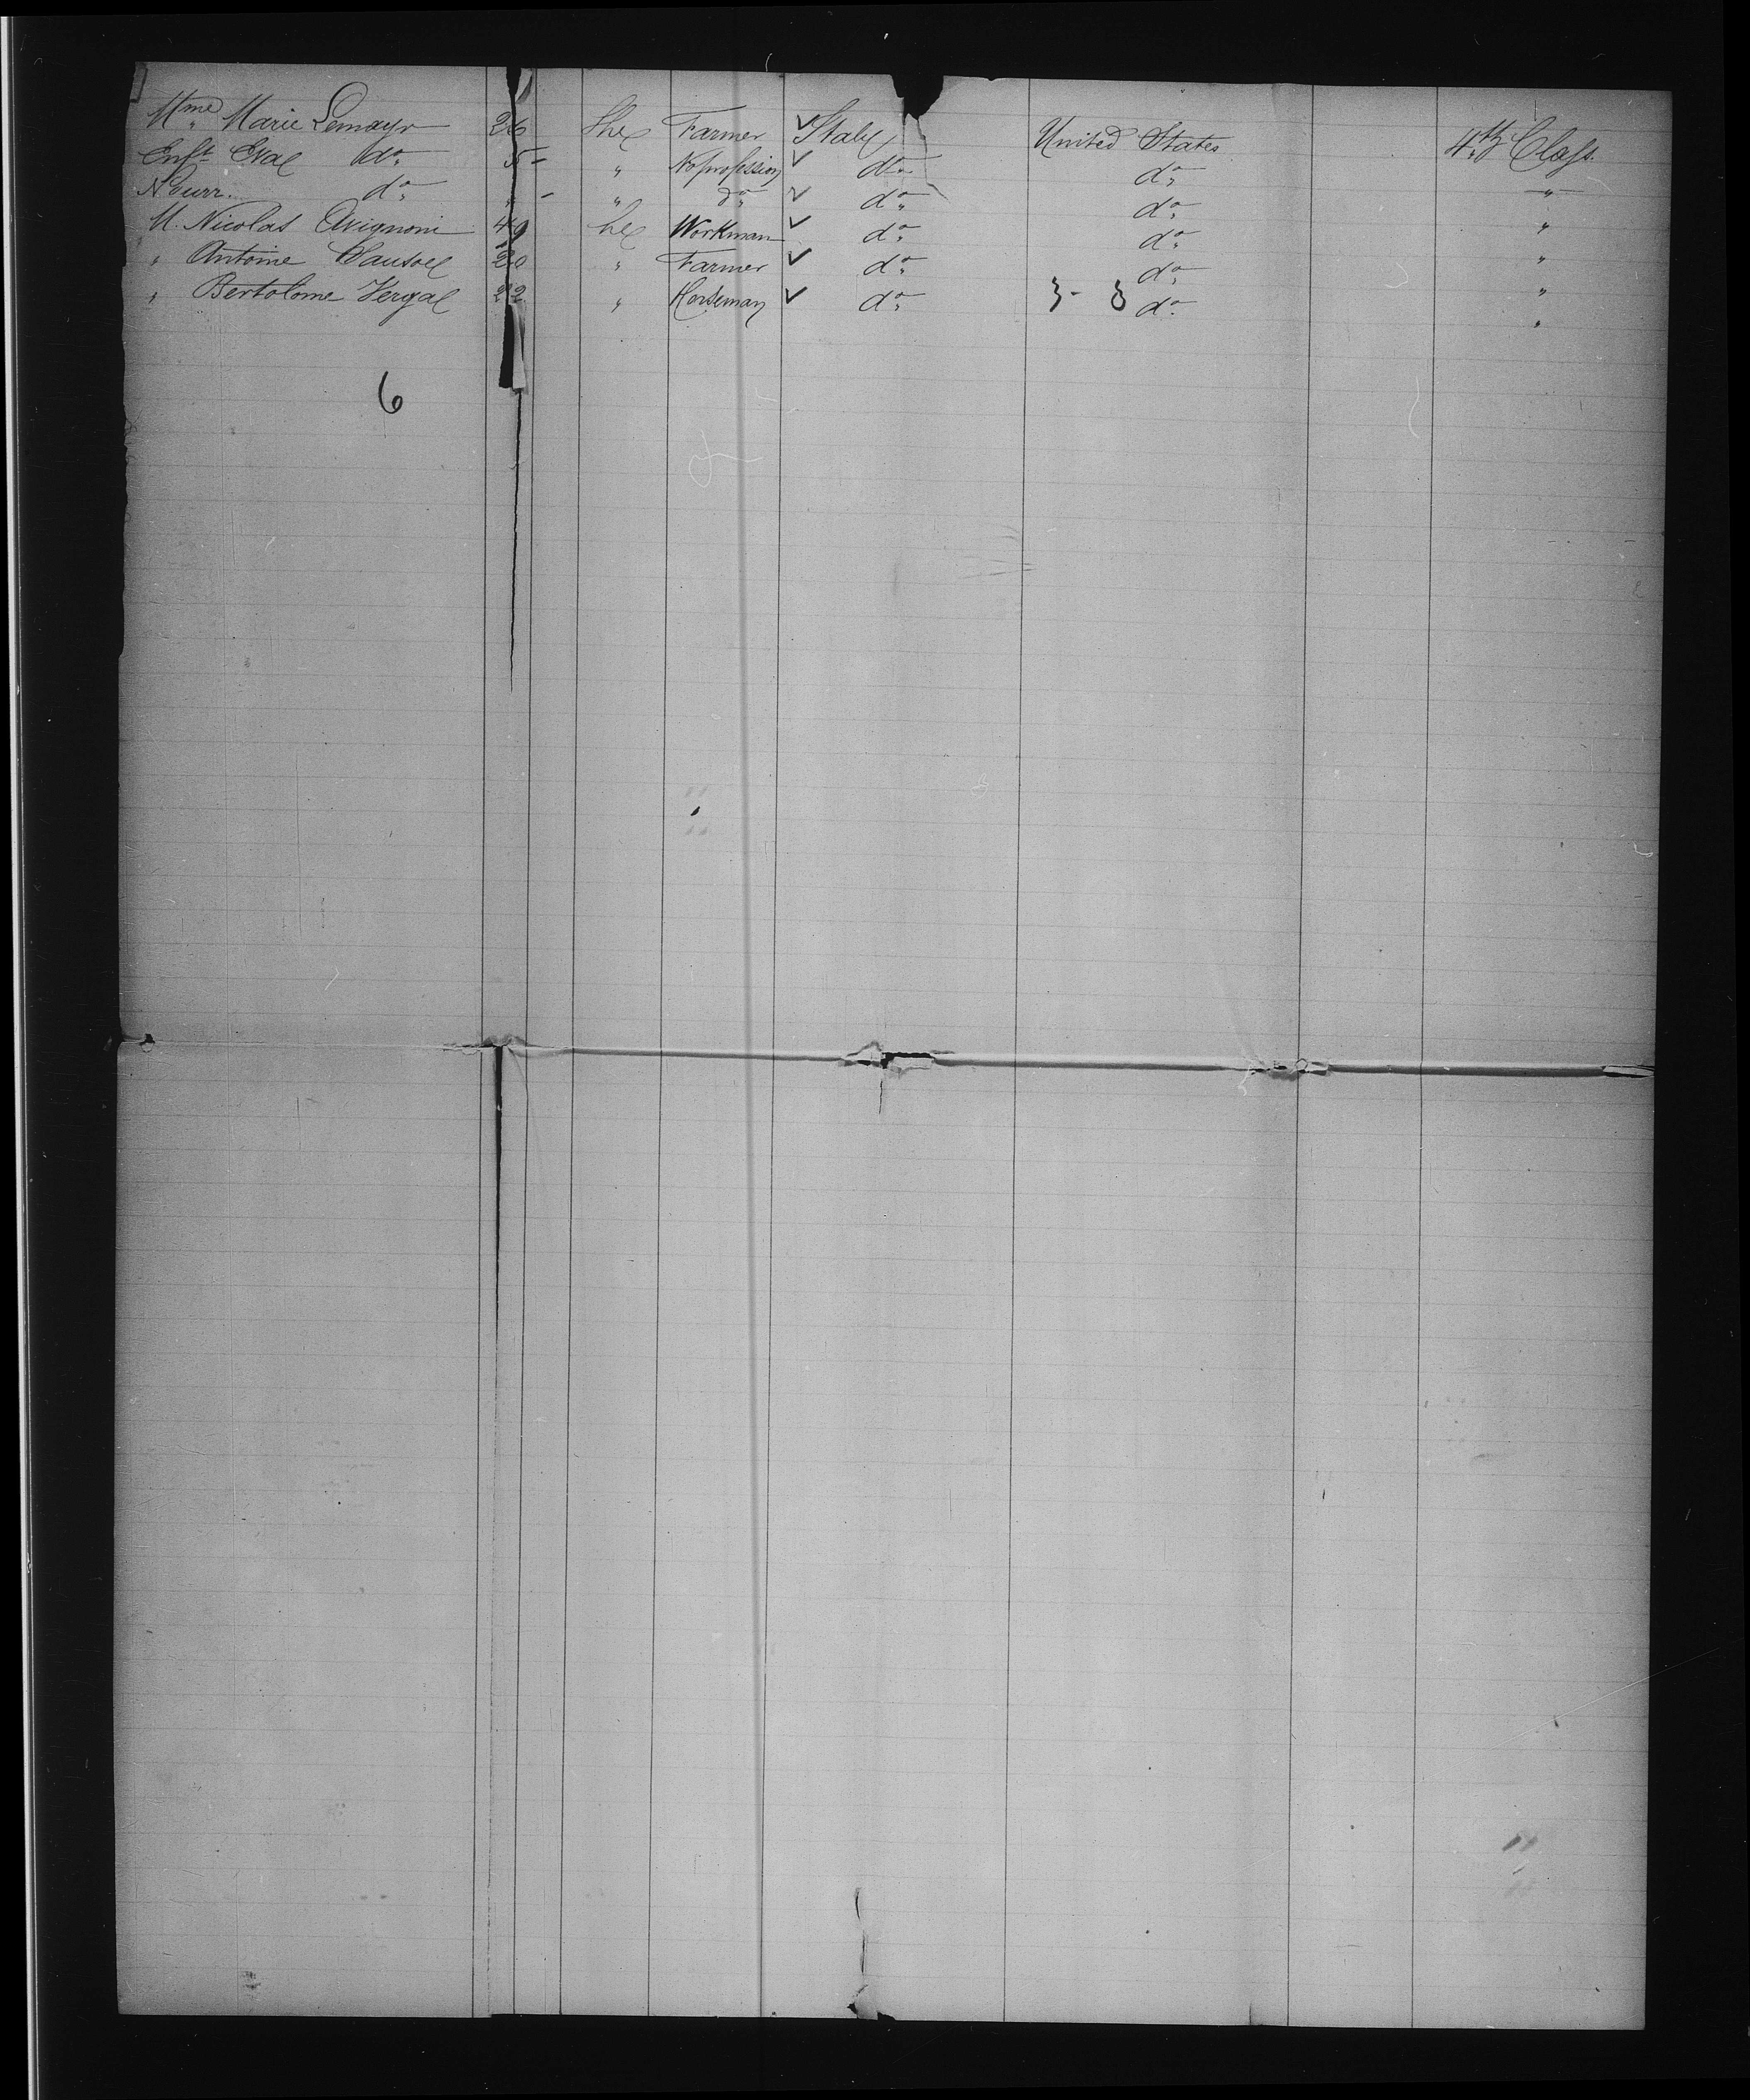 Mme Marie Lemayr 26 She Farmer Italy United States 4th Class
Enft Eval do 5 " No profession do do "
Nourr. do " " do do do "
M. Nicolas Avignoni 49 he Workman do do "
" Antoine 20 " Farmer do do "
" Bertolome Vergal 22 " Horseman do 3 - 3 do "
6